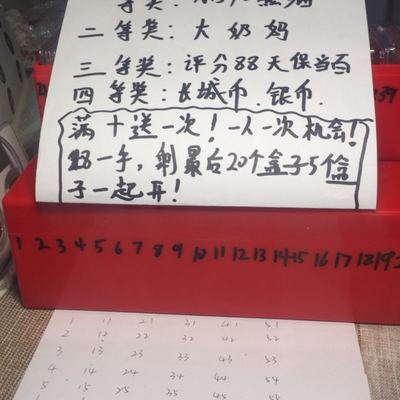 等奖:
二等奖:大奶妈
三等奖:评分88天保当百
四等奖:长城币.银币.
满十送一次!一人一次机会!
一手,剩最后20个盒子5个盒
子一起开!
1 2 3 4 5 6 7 8 9 10 11 12 13 14 15 16 17 18 19
1 11 21 31 41 51
2 12 22 32 42 52
3 13 23 33 43 53
4 14 24 34 44 54
5 15 25 35 45 55